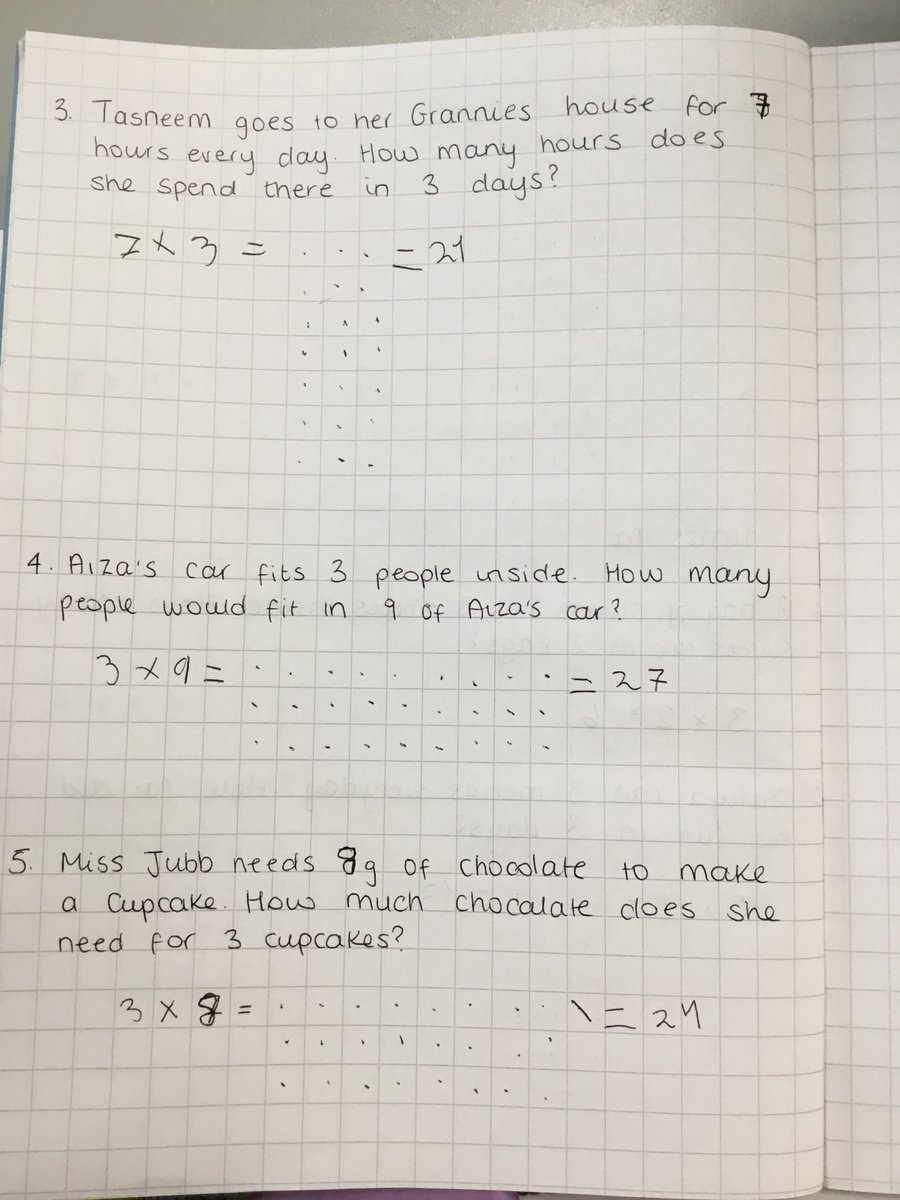 3. Tasneem goes to her Grannies house for 7
hours every day. How many hours does
she spend there in 3 days?
7 x 3 = = 21
4. Aiza's car fits 3 people inside. How many
people would fit in 9 of Aiza's car?
3 x 9 = = 27
5. Miss Jubb needs 8g of chocolate to make
a cupcake. How much chocalate does she
need for 3 cupcakes?
3 x 8 = = 24